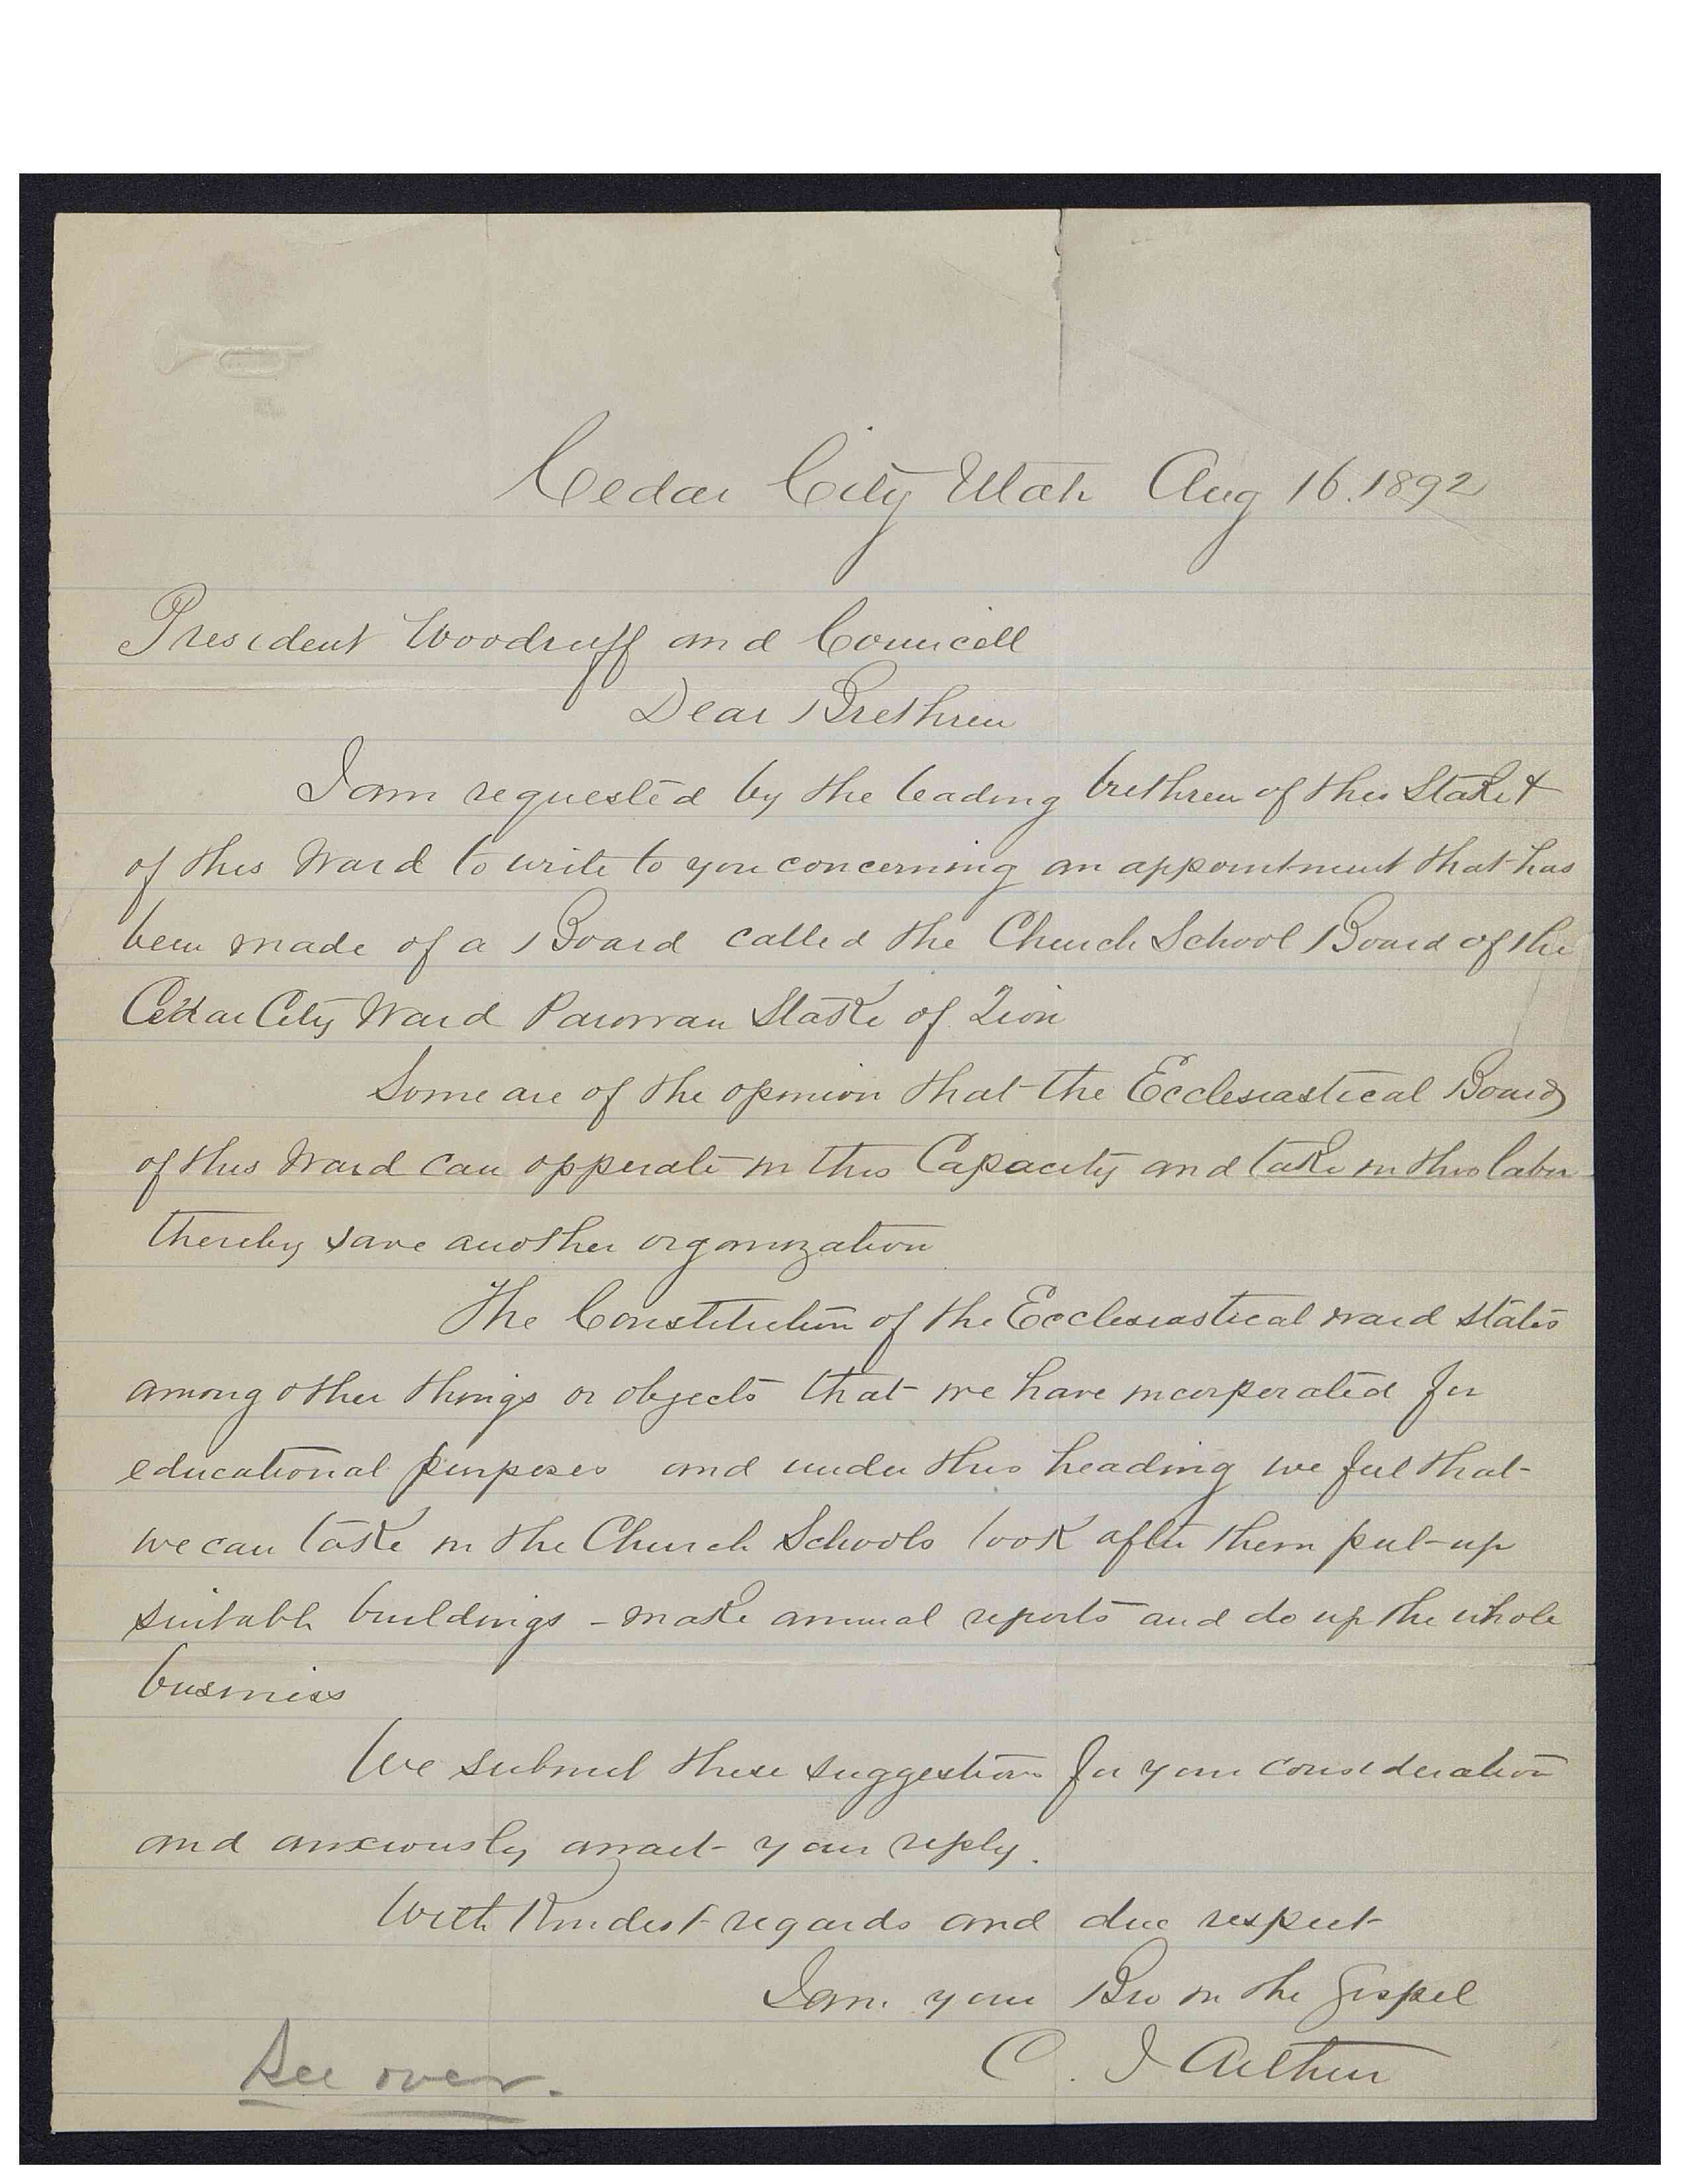 Cedar City Utah Aug 16. 1892
President Woodruff and Councill
Dear Brethren
I am requested by the leading brethren of this Stake &
of this Ward to write to you concerning an appointment that has
been made of a Board called the Church School Board of the
Cedar City Ward Parowan Stake of Zion
Some are of the opinion that the Ecclesiastical Board
of this Ward can opperate in this Capacity and take in this labor
thereby save another organization
The Constitution of the Ecclesiastical ward states
among other things or objects that we have incorperated for
educational purposes and under this heading we feel that
we can take in the Church Schools look after them put up
suitable buildings - make annual reports and do up the whole
business
We submit these suggestions for your consideration
and anxiously await your reply.
With Kindest regards and due respect
I am your Bro in the Gospel
C. J Arthur
See over.